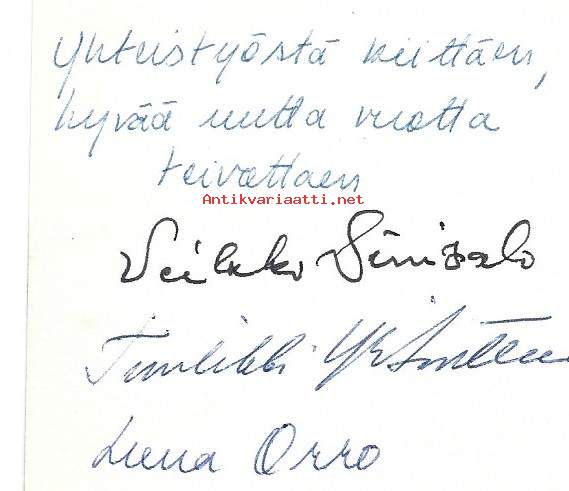 Yhteistyöstä kiittäen,
hyvää uutta vuotta
toivottaen
Antikvariaatti.net
Veikko Sinisalo
Tuulikki
Leena Orro